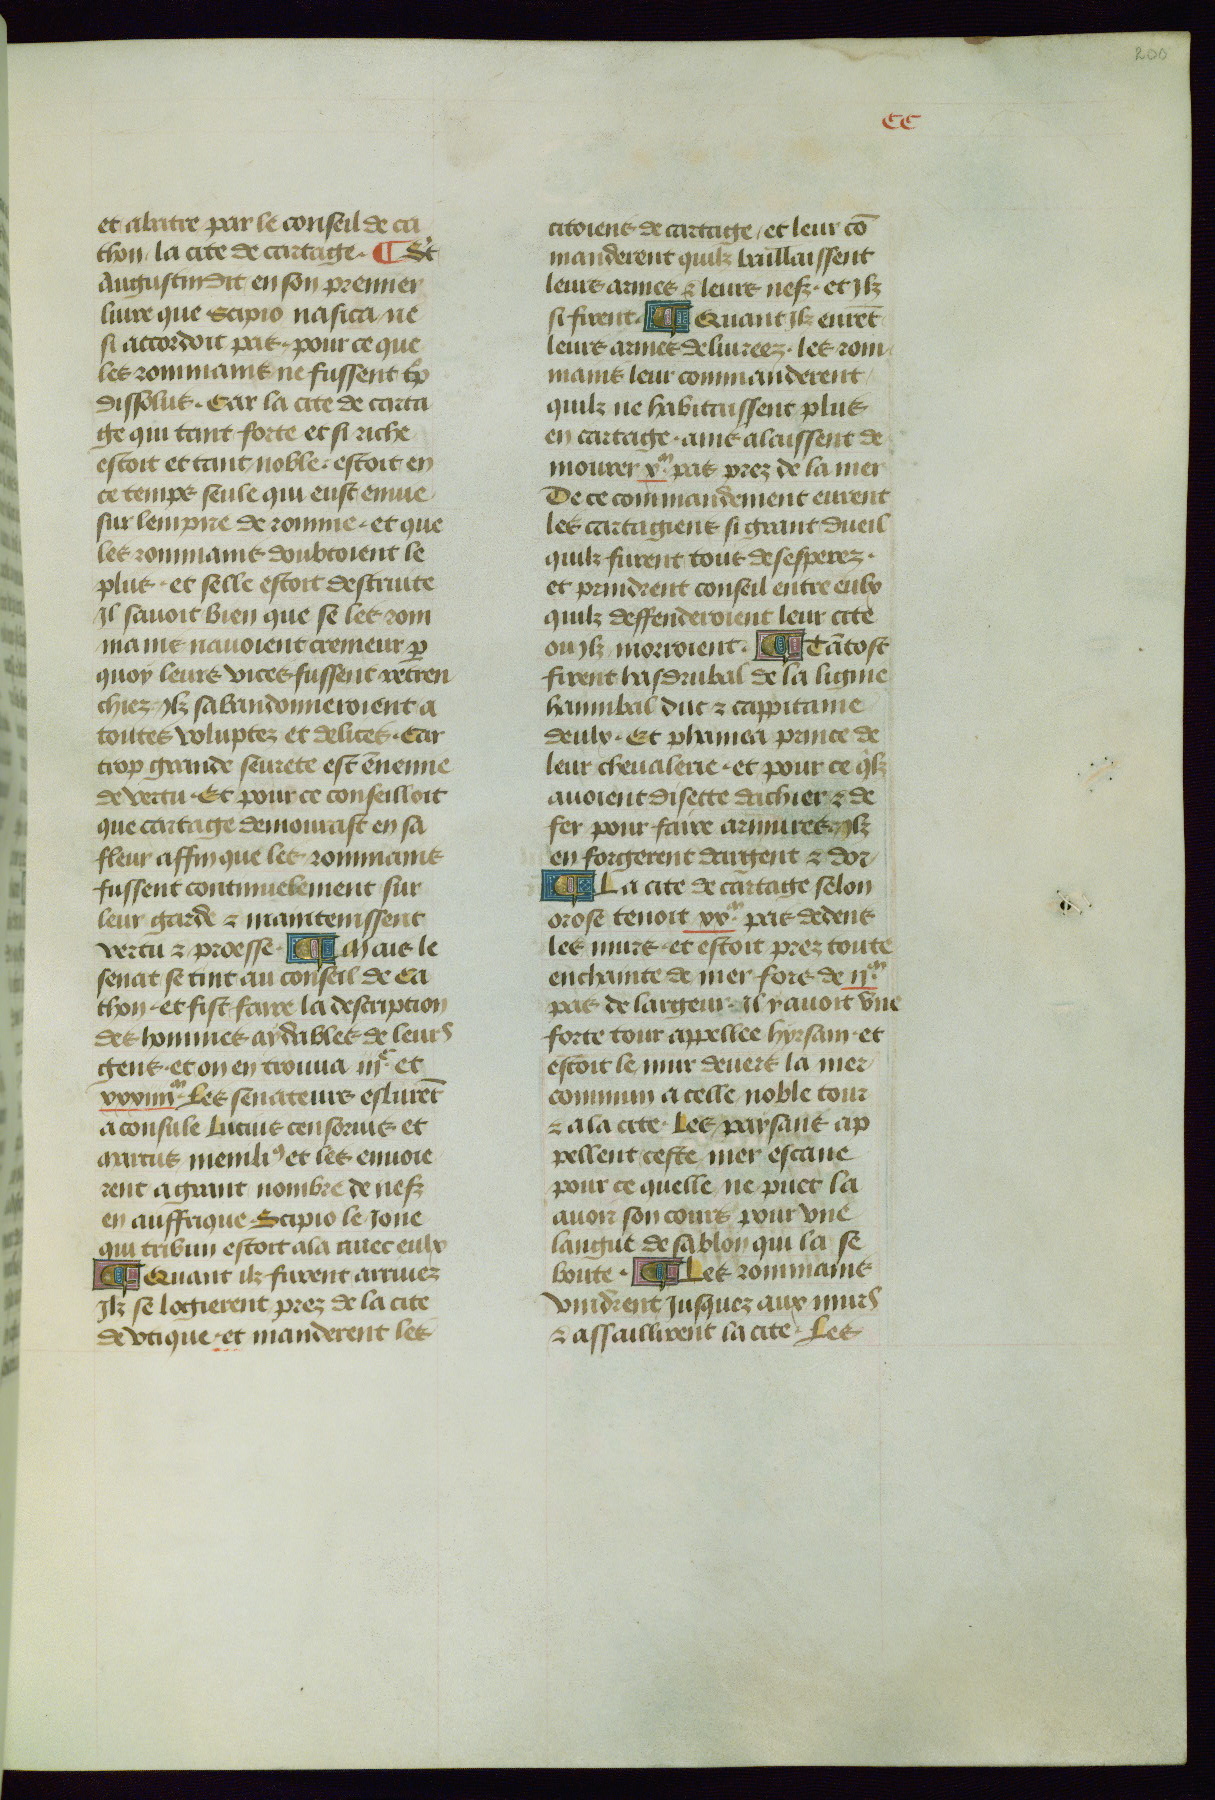 200
CC
et abatre par le conseil de ca
thon la cite de cartage. ¶ St
Augustin dit en son premier
liure que Scipio nasica ne
si accordoit pas. pour ce que
les rommains ne fussent tp̄
dissolus. Car la cite de carta
ge qui tant forte et si riche
estoit et tant noble. estoit en
ce temps seule qui eust enuie
sur lempire de romme. et que
les rommains doubtoient le
plus. et selle estoit destruite
Il sauoit bien que se les rom
mains nauoient cremeur p̱
quoy leurs vices fussent retren
chiez. Ilz sabandonneroient a
toutes voluptez et delices. Car
trop grande seurete est ēnemie
de vertu. Et pour ce conseilloit
que cartage demourast en sa
fleur affin que les rommains
fussent continuelement sur
leur garde ⁊ maintenissent
vertu ⁊ proesse. ¶ Mais le
senat se tint au conseil de Ca
thon. et fist faire la description
des hommes aydables de leurs
gens. et on en trouua iijᶜ. et
xxiiijᵐ. Les senateurs eslurēt
a consule Lucius censorius et
marcus menliꝰ et les enuoie
rent a grant nombre de nefz
en auffrique. Scipio le Jone
qui tribun estoit ala auec eulx
¶ Quant ilz furent arriuez
Ilz se logierent prez de la cite
de vtique. et manderent les
citoiens de cartage, et leur cō
manderent quilz baillaissent
leurs armes ⁊ leurs nefz. et Ilz
si firent. ¶ Quant Ilz eurēt
leurs armes deliurees. les rom
mains leur commanderent
quilz ne habitaissent plus
en cartage. ains alaissent de
mourer xᵐ. pas prez de la mer
De ce commandement eurent
les cartagiens si grant dueil
quilz furent tous desesperez.
et prindrent conseil entre eulx
quilz deffenderoient leur cite
ou Ilz morroient. ¶ Tātost
firent hasdrubal de la lignie
hannibal duc ⁊ cappitaine
deulx. Et phamea prince de
leur cheualerie. et pour ce q̄lz
auoient disette dachier ⁊ de
fer pour faire armures. Ilz
en forgerent dargent ⁊ dor
¶ La cite de cartage selon
orose tenoit xxᵐ. pas dedens
les murs. et estoit prez toute
enchainte de mer fors de ijᵐ.
pas de largeur. Il y auoit vne
forte tour appellee hyrsam. et
estoit le mur deuers la mer
commun a celle noble tour
⁊ a la cite. Les paysans ap
pellent ceste mer escaue
pour ce quelle ne puet la
auoir son cours pour vne
langue de sablon qui la se
boute. ¶ Les rommains
vindrent Jusquez aux murs
⁊ assaillirent la cite. Les